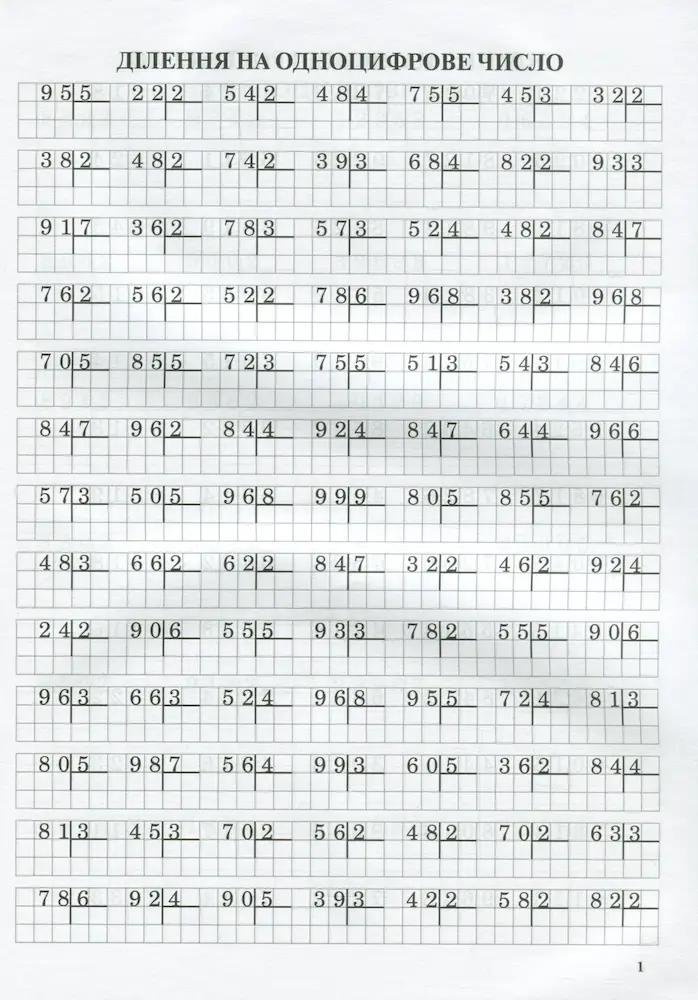 ДІЛЕННЯ НА ОДНОЦИФРОВЕ ЧИСЛО
95|5 22|2 54|2 48|4 75|5 45|3 32|2
38|2 48|2 74|2 39|3 68|4 82|2 93|3
91|7 36|2 78|3 57|3 52|4 48|2 84|7
76|2 56|2 52|2 78|6 96|8 38|2 96|8
70|5 85|5 72|3 75|5 51|3 54|3 84|6
84|7 96|2 84|4 92|4 84|7 64|4 96|6
57|3 50|5 96|8 99|9 80|5 85|5 76|2
48|3 66|2 62|2 84|7 32|2 46|2 92|4
24|2 90|6 55|5 93|3 78|2 55|5 90|6
96|3 66|3 52|4 96|8 95|5 72|4 81|3
80|5 98|7 56|4 99|3 60|5 36|2 84|4
81|3 45|3 70|2 56|2 48|2 70|2 63|3
78|6 92|4 90|5 39|3 42|2 58|2 82|2
1